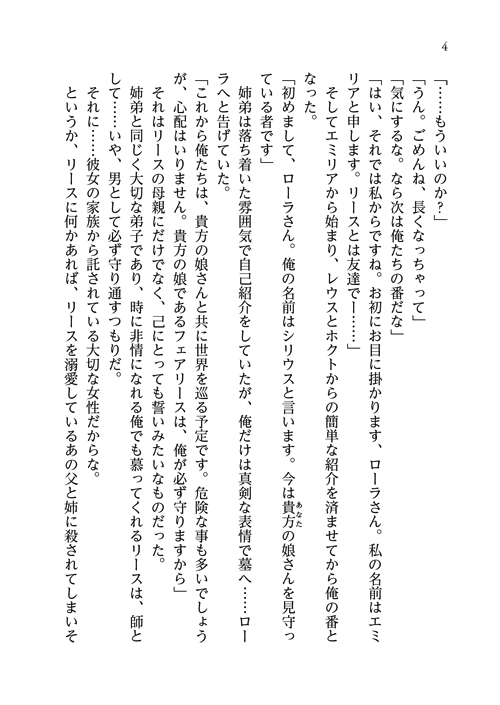 4
「……もういいのか？」
「うん。ごめんね、長くなっちゃって」
「気にするな。なら次は俺たちの番だな」
「はい、それでは私からですね。お初にお目に掛かります、ローラさん。私の名前はエミ
リアと申します。リースとは友達でー……」
そしてエミリアから始まり、レウスとホクトからの簡単な紹介を済ませてから俺の番と
なった。
「初めまして、ローラさん。俺の名前はシリウスと言います。今は貴方の娘さんを見守っ
あなた
ている者です」
姉弟は落ち着いた雰囲気で自己紹介をしていたが、俺だけは真剣な表情で墓へ……ロー
ラへと告げていた。
「これから俺たちは、貴方の娘さんと共に世界を巡る予定です。危険な事も多いでしょう
が、心配はいりません。貴方の娘であるフェアリースは、俺が必ず守りますから」
それはリースの母親にだけでなく、己にとっても誓いみたいなものだった。
姉弟と同じく大切な弟子であり、時に非情になれる俺でも慕ってくれるリースは、師と
して……いや、男として必ず守り通すつもりだ。
それに……彼女の家族から託されている大切な女性だからな。
というか、リースに何かあれば、リースを溺愛しているあの父と姉に殺されてしまいそ